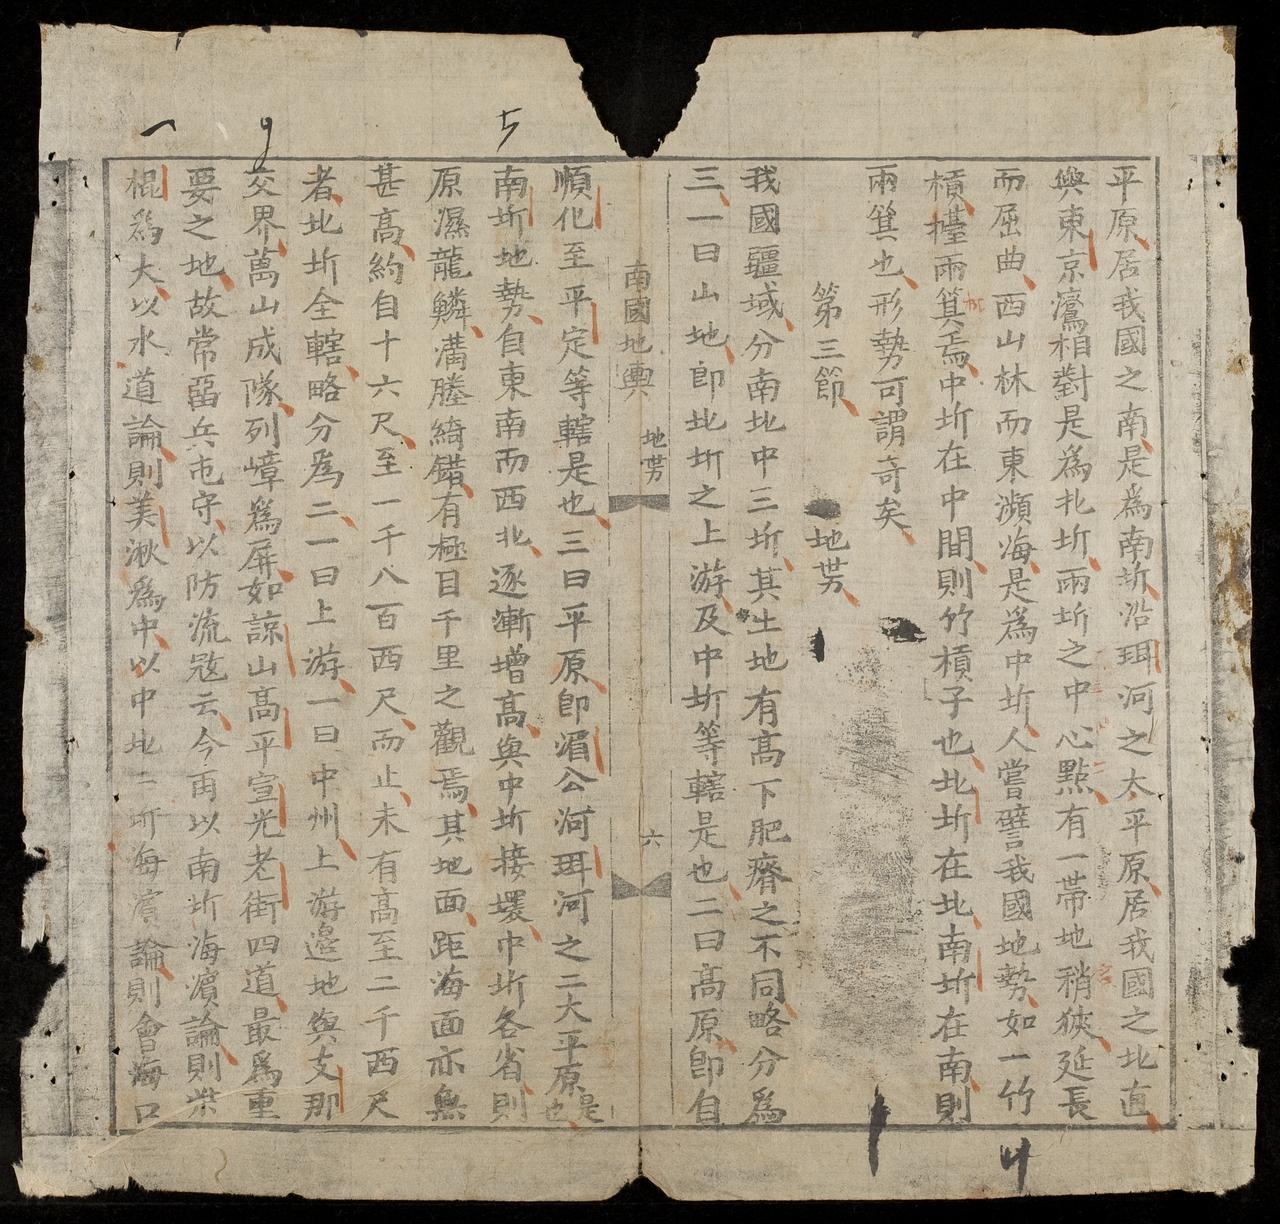 平原居我國之南是爲南圻沿珥河之太平原居我國之北直
與東京灣相對是爲北圻兩圻之中心點有一帶地稍狹延長
而屈曲西山林而東瀕海是爲中圻人嘗譬我國地勢如一竹
槓擡兩箕焉中圻在中間則竹槓子也北圻在北南圻在南則
兩箕也形勢可謂奇矣
第三節 地势
我國疆域分南北中三圻其土地有高下肥瘠之不同略分爲
三一曰山地即北圻之上游及中圻等轄是也二曰高原即自
南國地輿 地势 六
順化至平定等轄是也三曰平原即湄公河珥河之二大平原是也
南圻地勢自東南而西北逐漸增高與中圻接壤中圻各省則
原濕龍鱗溝塍綺錯有極目千里之觀焉其地面距海面亦無
甚高約自十六尺至一千八百西尺而止未有高至二千西尺
者北圻全轄略分爲二一曰上游一曰中州上游邊地與支那
交界萬山成隊列嶂爲屏如諒山高平宣光老街四道最爲重
要之地故常畱兵屯守以防流寇云今再以南圻海濱論則柴
棍爲大以水道論則美湫爲中以中北二圻海濱論則會海口
5
9
4